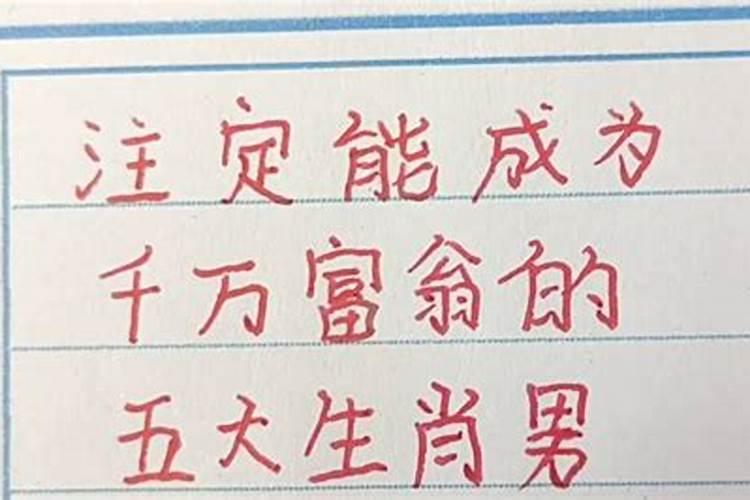 注定能成为
千万富翁的
五大生肖男